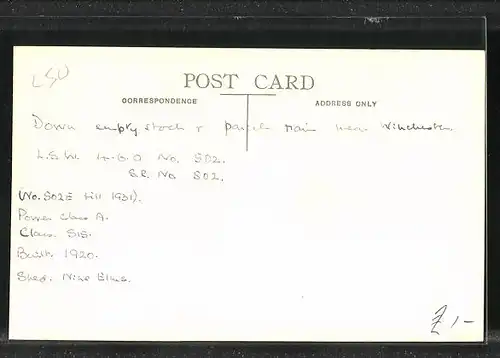 LSU
POST CARD
CORRESPONDENCE
ADDRESS ONLY
Down empty stock & parcels train near Winchester.
L.S.W. 4-6-0 No. 502.
S.R. No. 502.
(No. 502E till 1931).
Power Class A.
Class. S15.
Built. 1920.
Shed. Nine Elms.
£1,-